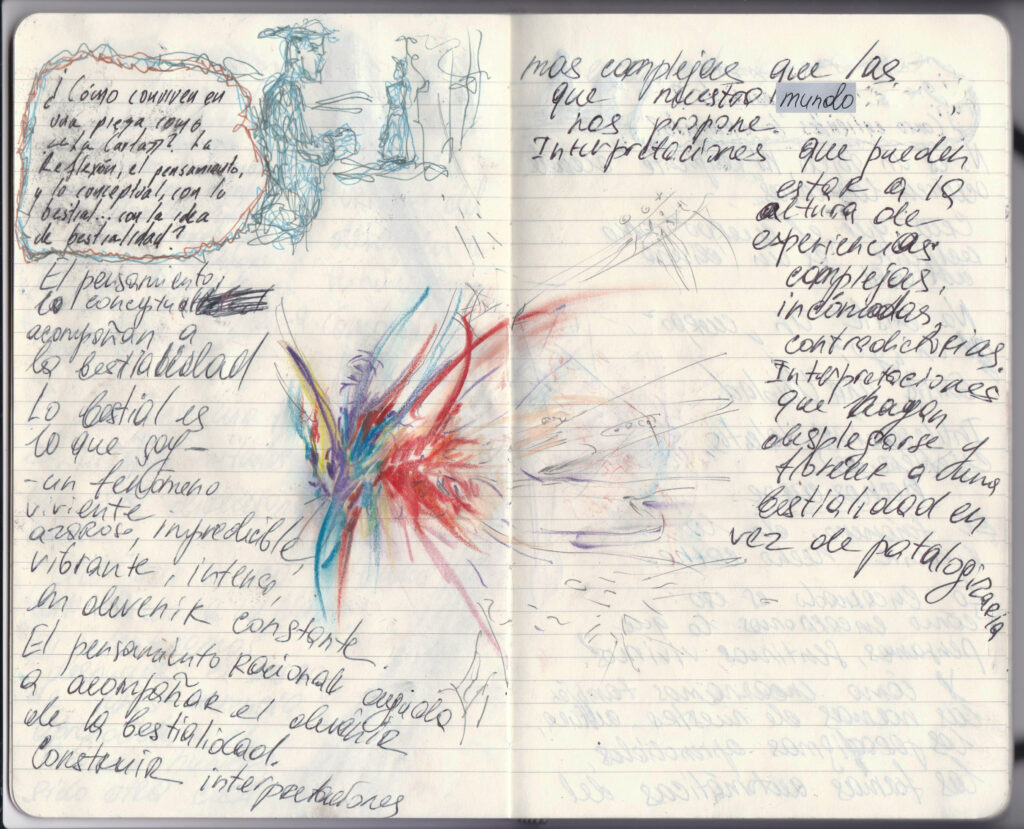 ¿Cómo conviven en
una pieza como
esta Carta, la
Reflexión, el pensamiento,
y lo conceptual, con lo
bestial... con la idea
de bestialidad?
El pensamiento,
lo conceptual
acompañan a
la bestialidad
Lo bestial es
lo que soy-
-un fenómeno
viviente
azaroso, impredicible,
vibrante, intenso,
en devenir constante.
El pensamiento racional ayuda
a acompañar el devenir
de la bestialidad.
Construir interpretaciones
mas complejas que las
que nuestro mundo
nos propone.
Interpretaciones que pueden
estar a la
altura de
experiencias
complejas,
incómodas,
contradictorias.
Interpretaciones
que hagan
desplegarse y
florecer a una
bestialidad en
vez de patalogizarla